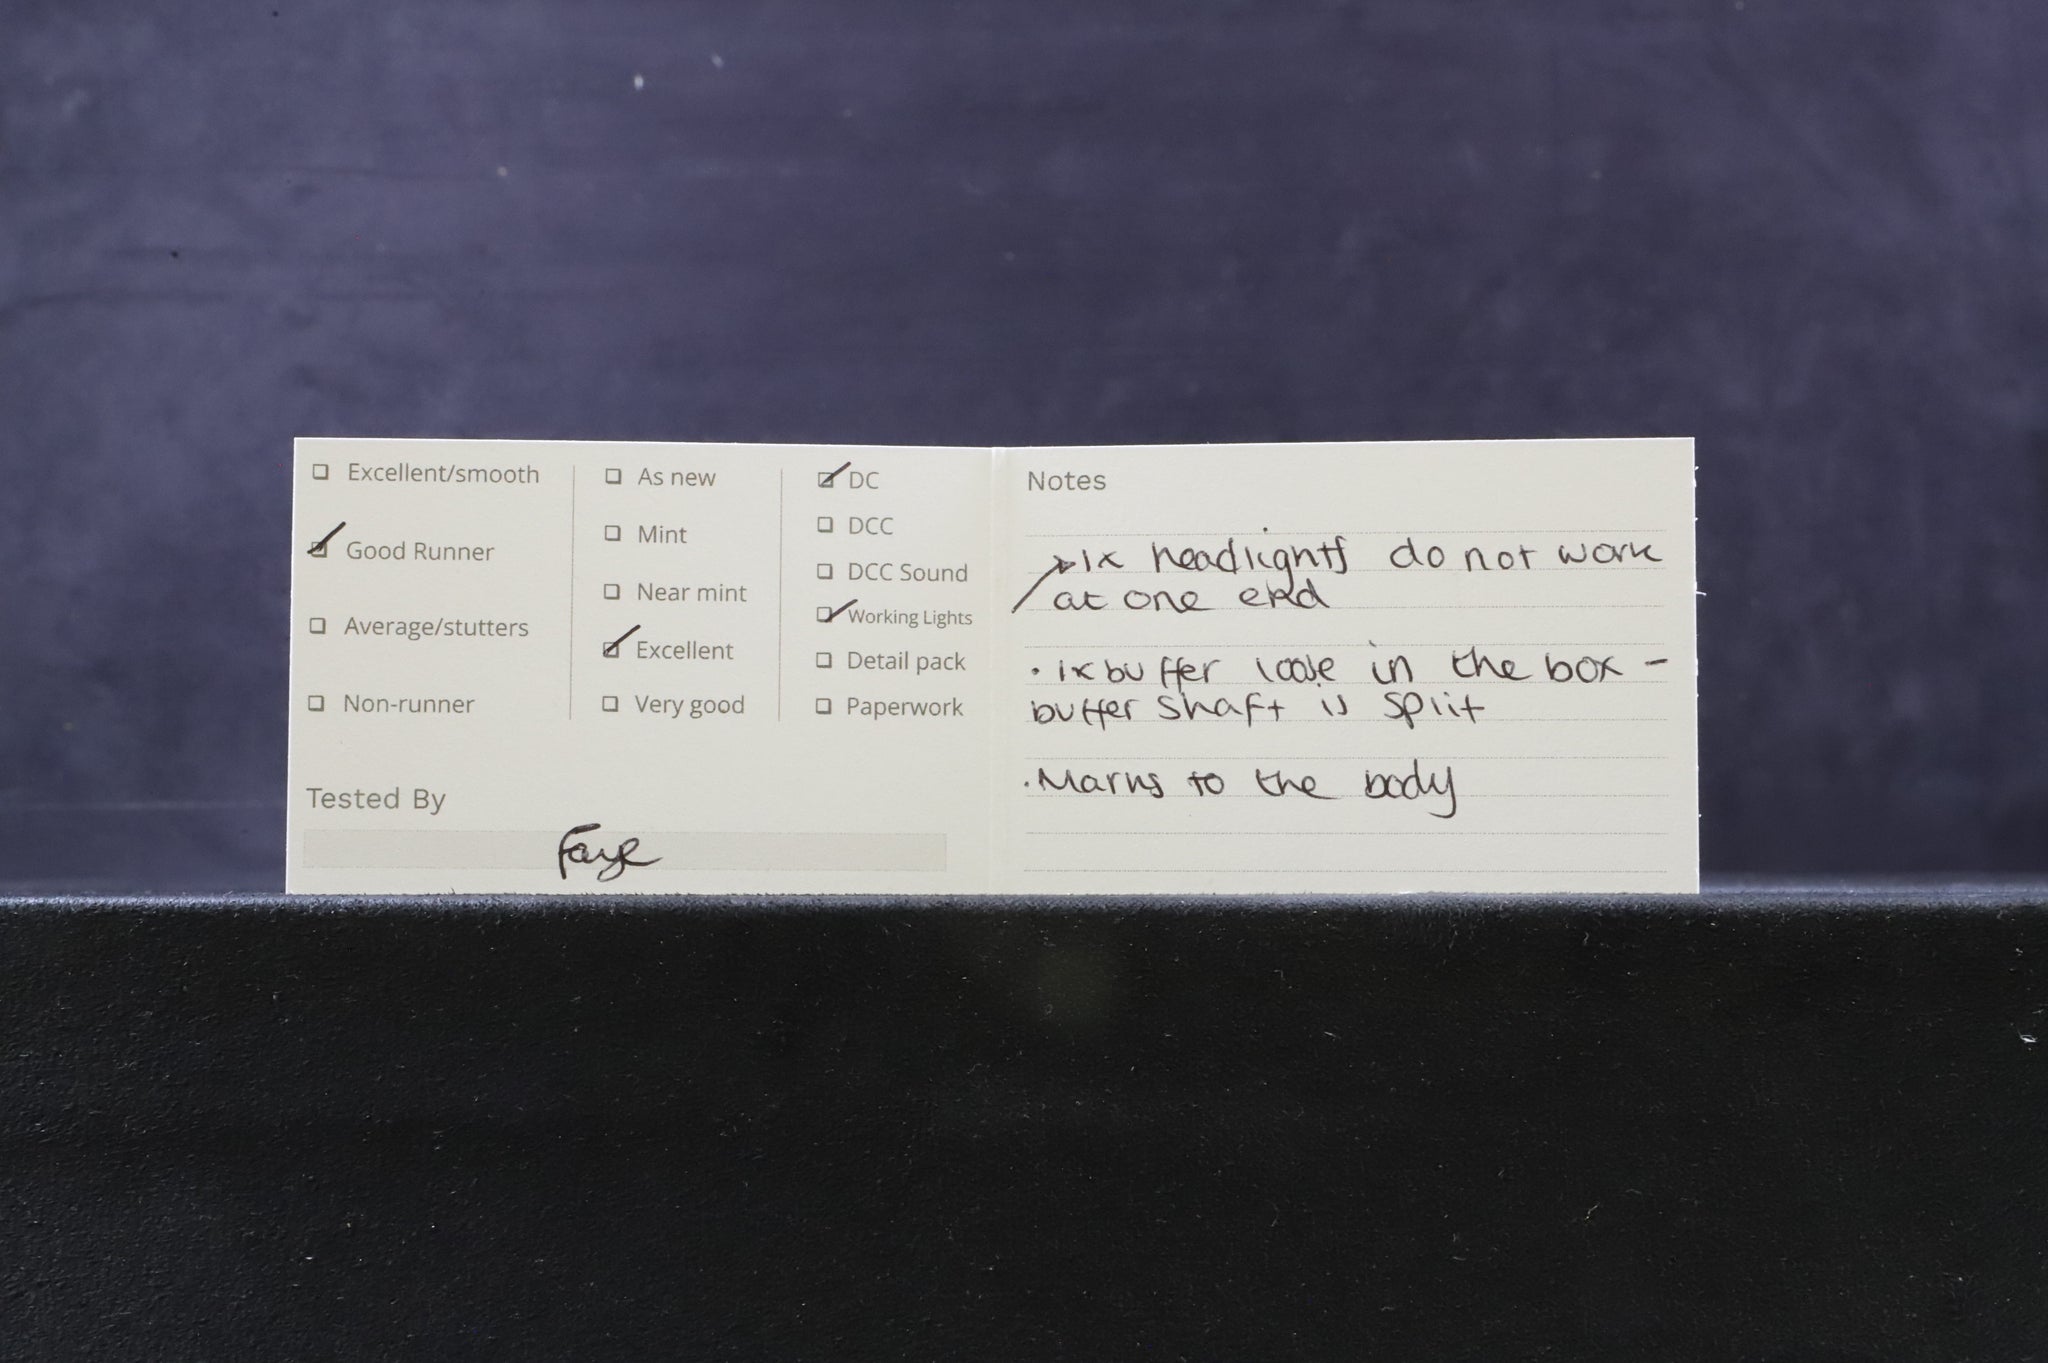 Excellent/smooth
Good Runner
Average/stutters
Non-runner
As new
Mint
Near mint
Excellent
Very good
DC
DCC
DCC Sound
Working Lights
Detail pack
Paperwork
Tested By
Faye
Notes
1x headlights do not work
at one end
· 1x buffer loose in the box -
buffer shaft is split
· Marks to the body